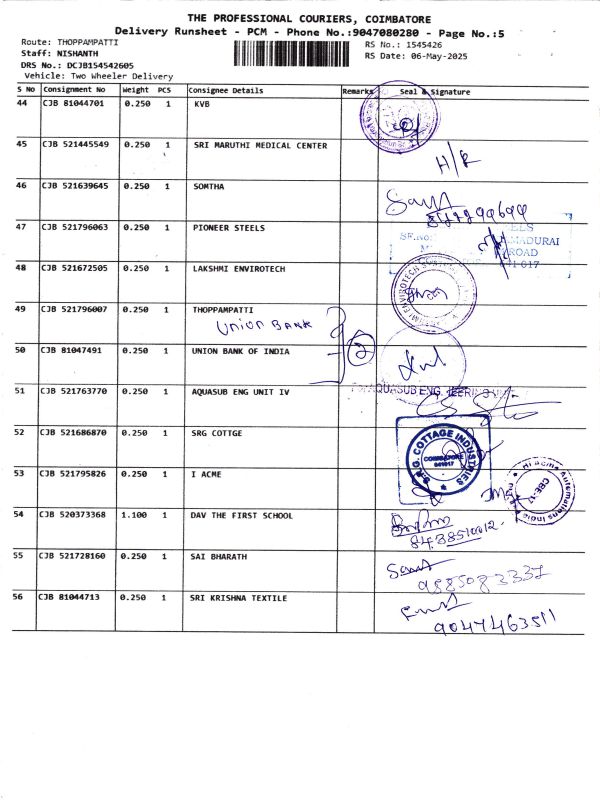 THE PROFESSIONAL COURIERS, COIMBATORE
Delivery Runsheet - PCM - Phone No.:9047080280 - Page No.:5
Route: THOPPAMPATTI
Staff: NISHANTH
DRS No.: DCJB154542605
Vehicle: Two Wheeler Delivery
RS No.: 1545426
RS Date: 06-May-2025
S No Consignment No Weight PCS Consignee Details Remarks Seal & Signature
44 CJB 81044701 0.250 1 KVB
45 CJB 521445549 0.250 1 SRI MARUTHI MEDICAL CENTER
H/R
46 CJB 521639645 0.250 1 SOMTHA
47 CJB 521796063 0.250 1 PIONEER STEELS
ELS
SF.No:
MADURAI
ROAD
641 017
48 CJB 521672505 0.250 1 LAKSHMI ENVIROTECH
49 CJB 521796007 0.250 1 THOPPAMPATTI
UNION BANK
2
50 CJB 81047491 0.250 1 UNION BANK OF INDIA
51 CJB 521763770 0.250 1 AQUASUB ENG UNIT IV
AQUASUB ENG
52 CJB 521686870 0.250 1 SRG COTTGE
S.R.G. COTTAGE INDUSTRIES
COIMBATORE
641017
53 CJB 521795826 0.250 1 I ACME
Hi Acme Automations India
CBE-17
54 CJB 520373368 1.100 1 DAV THE FIRST SCHOOL
8438510012
55 CJB 521728160 0.250 1 SAI BHARATH
9585083337
56 CJB 81044713 0.250 1 SRI KRISHNA TEXTILE
9047463511